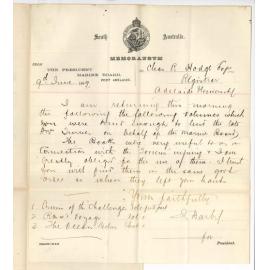 South Australia.
MEMORANDUM
FROM
THE PRESIDENT,
MARINE BOARD,
PORT ADELAIDE.
9th June
Chas R Hodge Esq
Registrar
Adelaide University
I am returning this morning
the following the following volumes which
you were good enough to lend the
on behalf of the Marine Board.
The Books were very useful to us in
connection with the inquiry & I am
greatly obliged for the use of them. I trust
you will find them in the same good
order as when they left your hands
Yours faithfully
1 Cruise of the Challenge
2 Voyage
3 The Ocean
for
President.